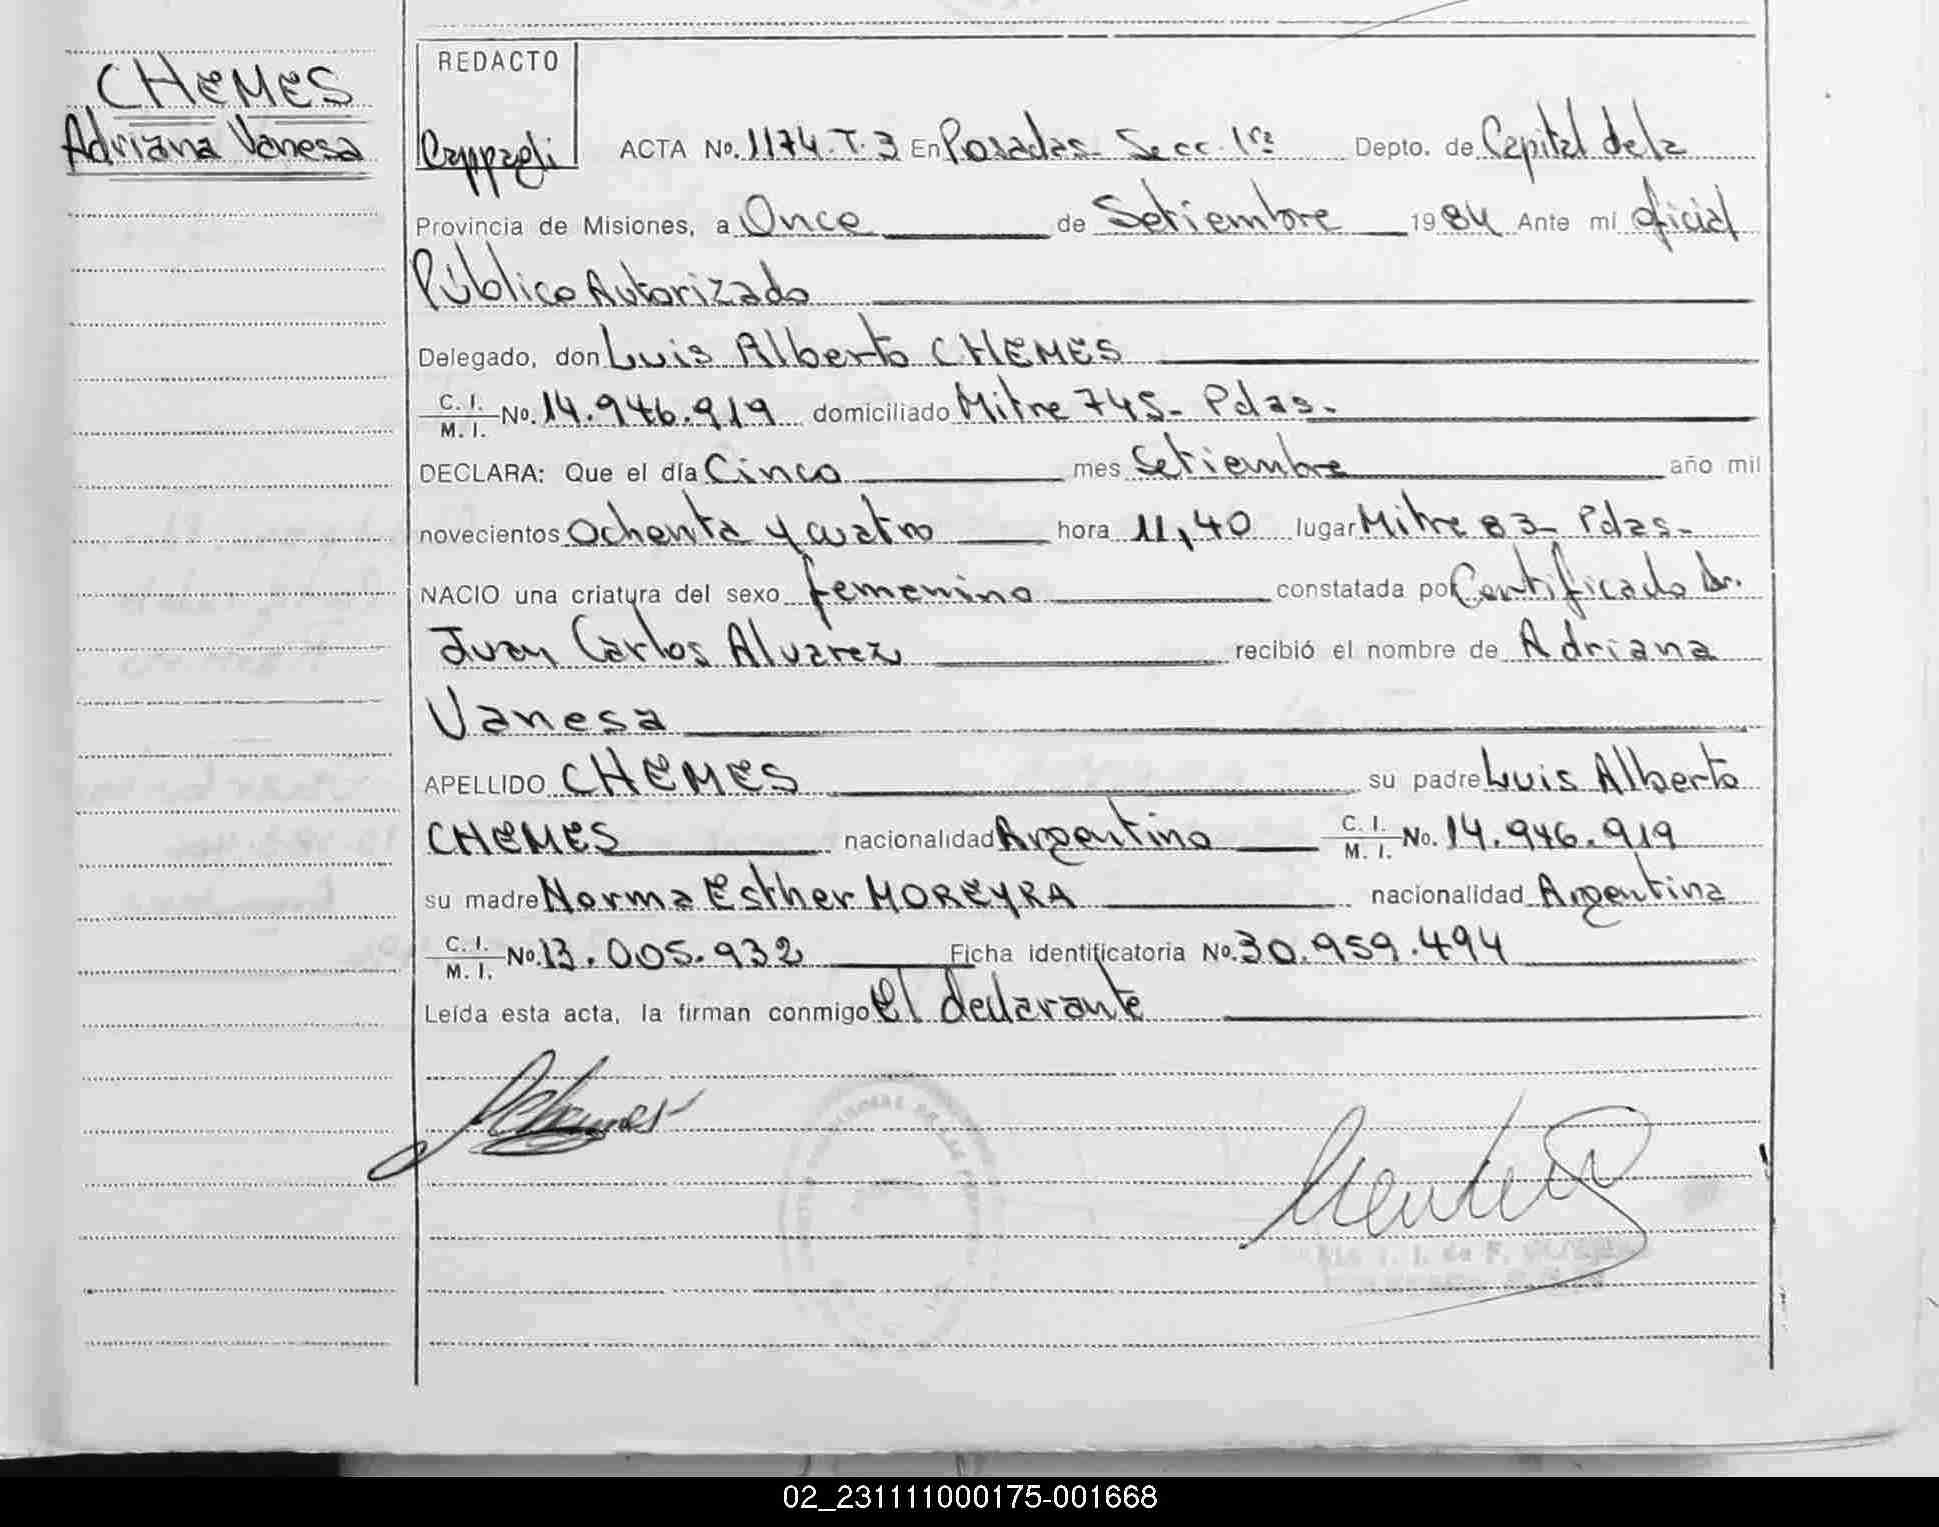 CHEMES
Adriana Vanesa
REDACTO
ACTA No. 1174. T. 3 En Posadas- Secc. 1ra Depto. de Capital de la
Provincia de Misiones, a Once de Setiembre 1984 Ante mí oficial
Público Autorizado
Delegado, don Luis Alberto CHEMES
C. I.
M. I. No. 14.946.919 domiciliado Mitre 745- Pdas.
DECLARA: Que el día Cinco mes Setiembre año mil
novecientos Ochenta y cuatro hora 11,40 lugar Mitre 83- Pdas-
NACIO una criatura del sexo femenino constatada por Certificado Dr.
Juan Carlos Alvarez recibió el nombre de Adriana
Vanesa
APELLIDO CHEMES su padre Luis Alberto
CHEMES nacionalidad Argentino C. I.
M. I. No. 14.946.919
su madre Norma Esther MOREYRA nacionalidad Argentina
C. I.
M. I. No. 13.005.932 Ficha identificatoria No. 30.959.494
Leída esta acta, la firman conmigo el declarante
02_231111000175-001668